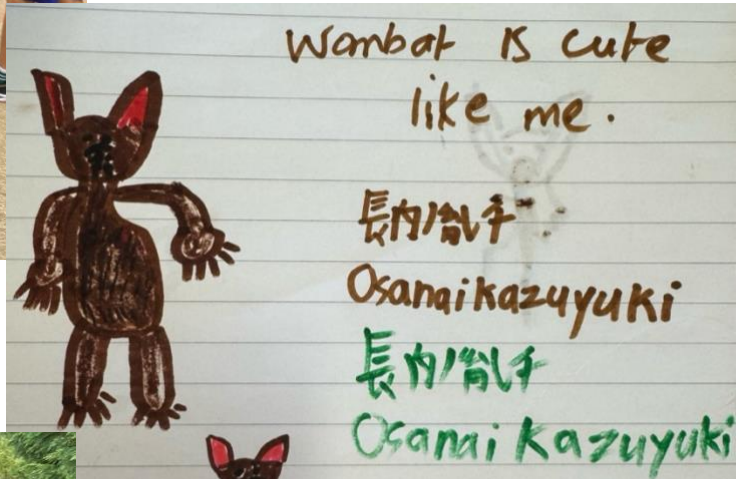 Wombat is cute
like me.
長内
Osanai kazuyuki
長内
Osanai Kazuyuki